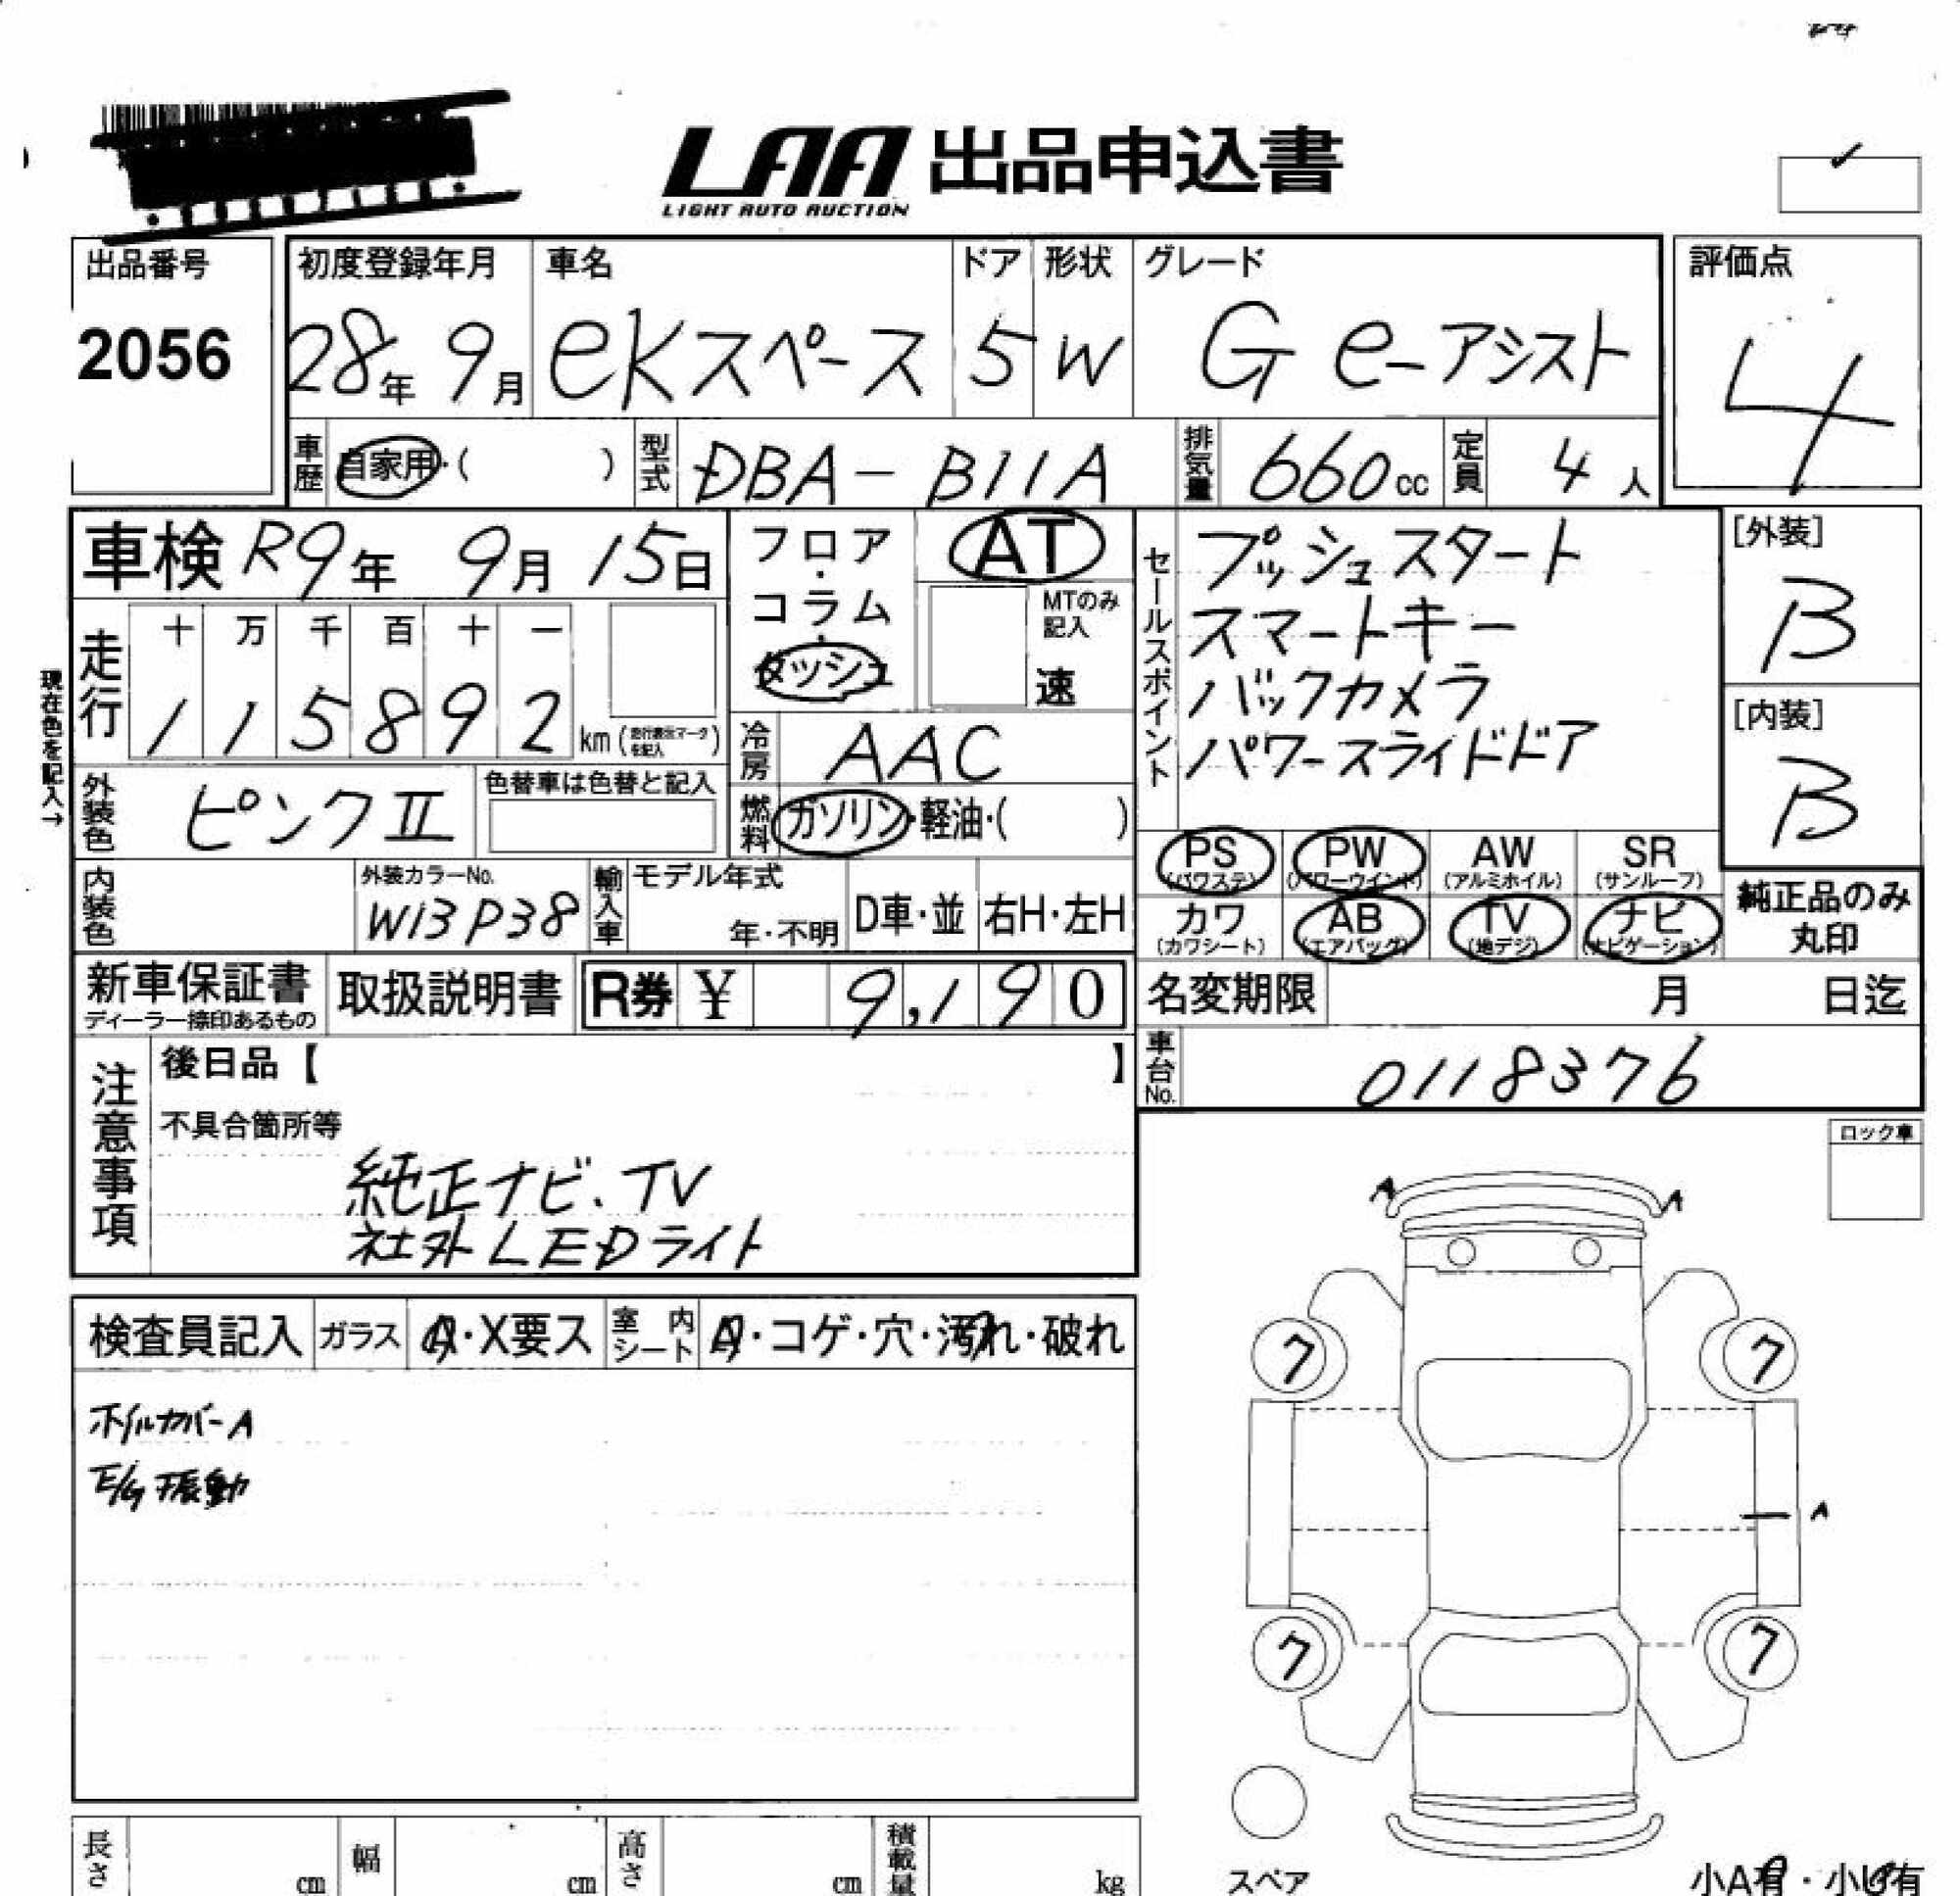 LAA 出品申込書
LIGHT AUTO AUCTION
出品番号
2056
初度登録年月
28年 9月
車名
eKスペース
ドア
5
形状
W
グレード
G e-アシスト
評価点
4
車歴 自家用・( )
型式 DBA-B11A
排気量 660cc
定員 4人
車検 R9年 9月 15日
フロア・コラム・ダッシュ
AT
MTのみ記入
速
セールスポイント
プッシュスタート
スマートキー
バックカメラ
パワースライドドア
[外装]
B
[内装]
B
現在色を記入→
走行
十 万 千 百 十 一
1 1 5 8 9 2 km
冷房 AAC
外装色 ピンクⅡ
色替車は色替と記入
燃料 ガソリン・軽油・( )
PS (パワステ)
PW (パワーウインド)
AW (アルミホイル)
SR (サンルーフ)
カワ (カワシート)
AB (エアバッグ)
TV (地デジ)
ナビ (ナビゲーション)
純正品のみ
丸印
内装色
外装カラーNo.
W13 P38
輸入車
モデル年式
年・不明
D車・並
右H・左H
新車保証書
ディーラー捺印あるもの
取扱説明書
R券 ¥ 9,190
名変期限 月 日迄
車台No. 0118376
注意事項
後日品【 】
不具合箇所等
純正ナビ、TV
社外LEDライト
ロック車
A
A
検査員記入 ガラス A・X要ス 室内シート A・コゲ・穴・汚れ・破れ
ホイルカバーA
E/G振動
ク
ク
A
ク
ク
スペア
小A有・小U有
長さ cm
幅 cm
高さ cm
積載量 kg